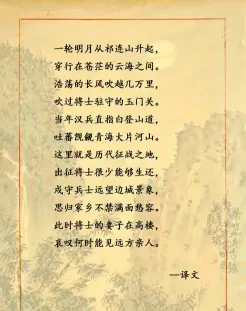 一轮明月从祁连山升起,
穿行在苍茫的云海之间。
浩荡的长风吹越几万里,
吹过将士驻守的玉门关。
当年汉兵直指白登山道,
吐蕃觊觎青海大片河山。
这里就是历代征战之地,
出征将士很少能够生还,
戍守兵士远望边城景象,
思归家乡不禁满面愁容。
此时将士的妻子在高楼,
哀叹何时能见远方亲人。
—译文